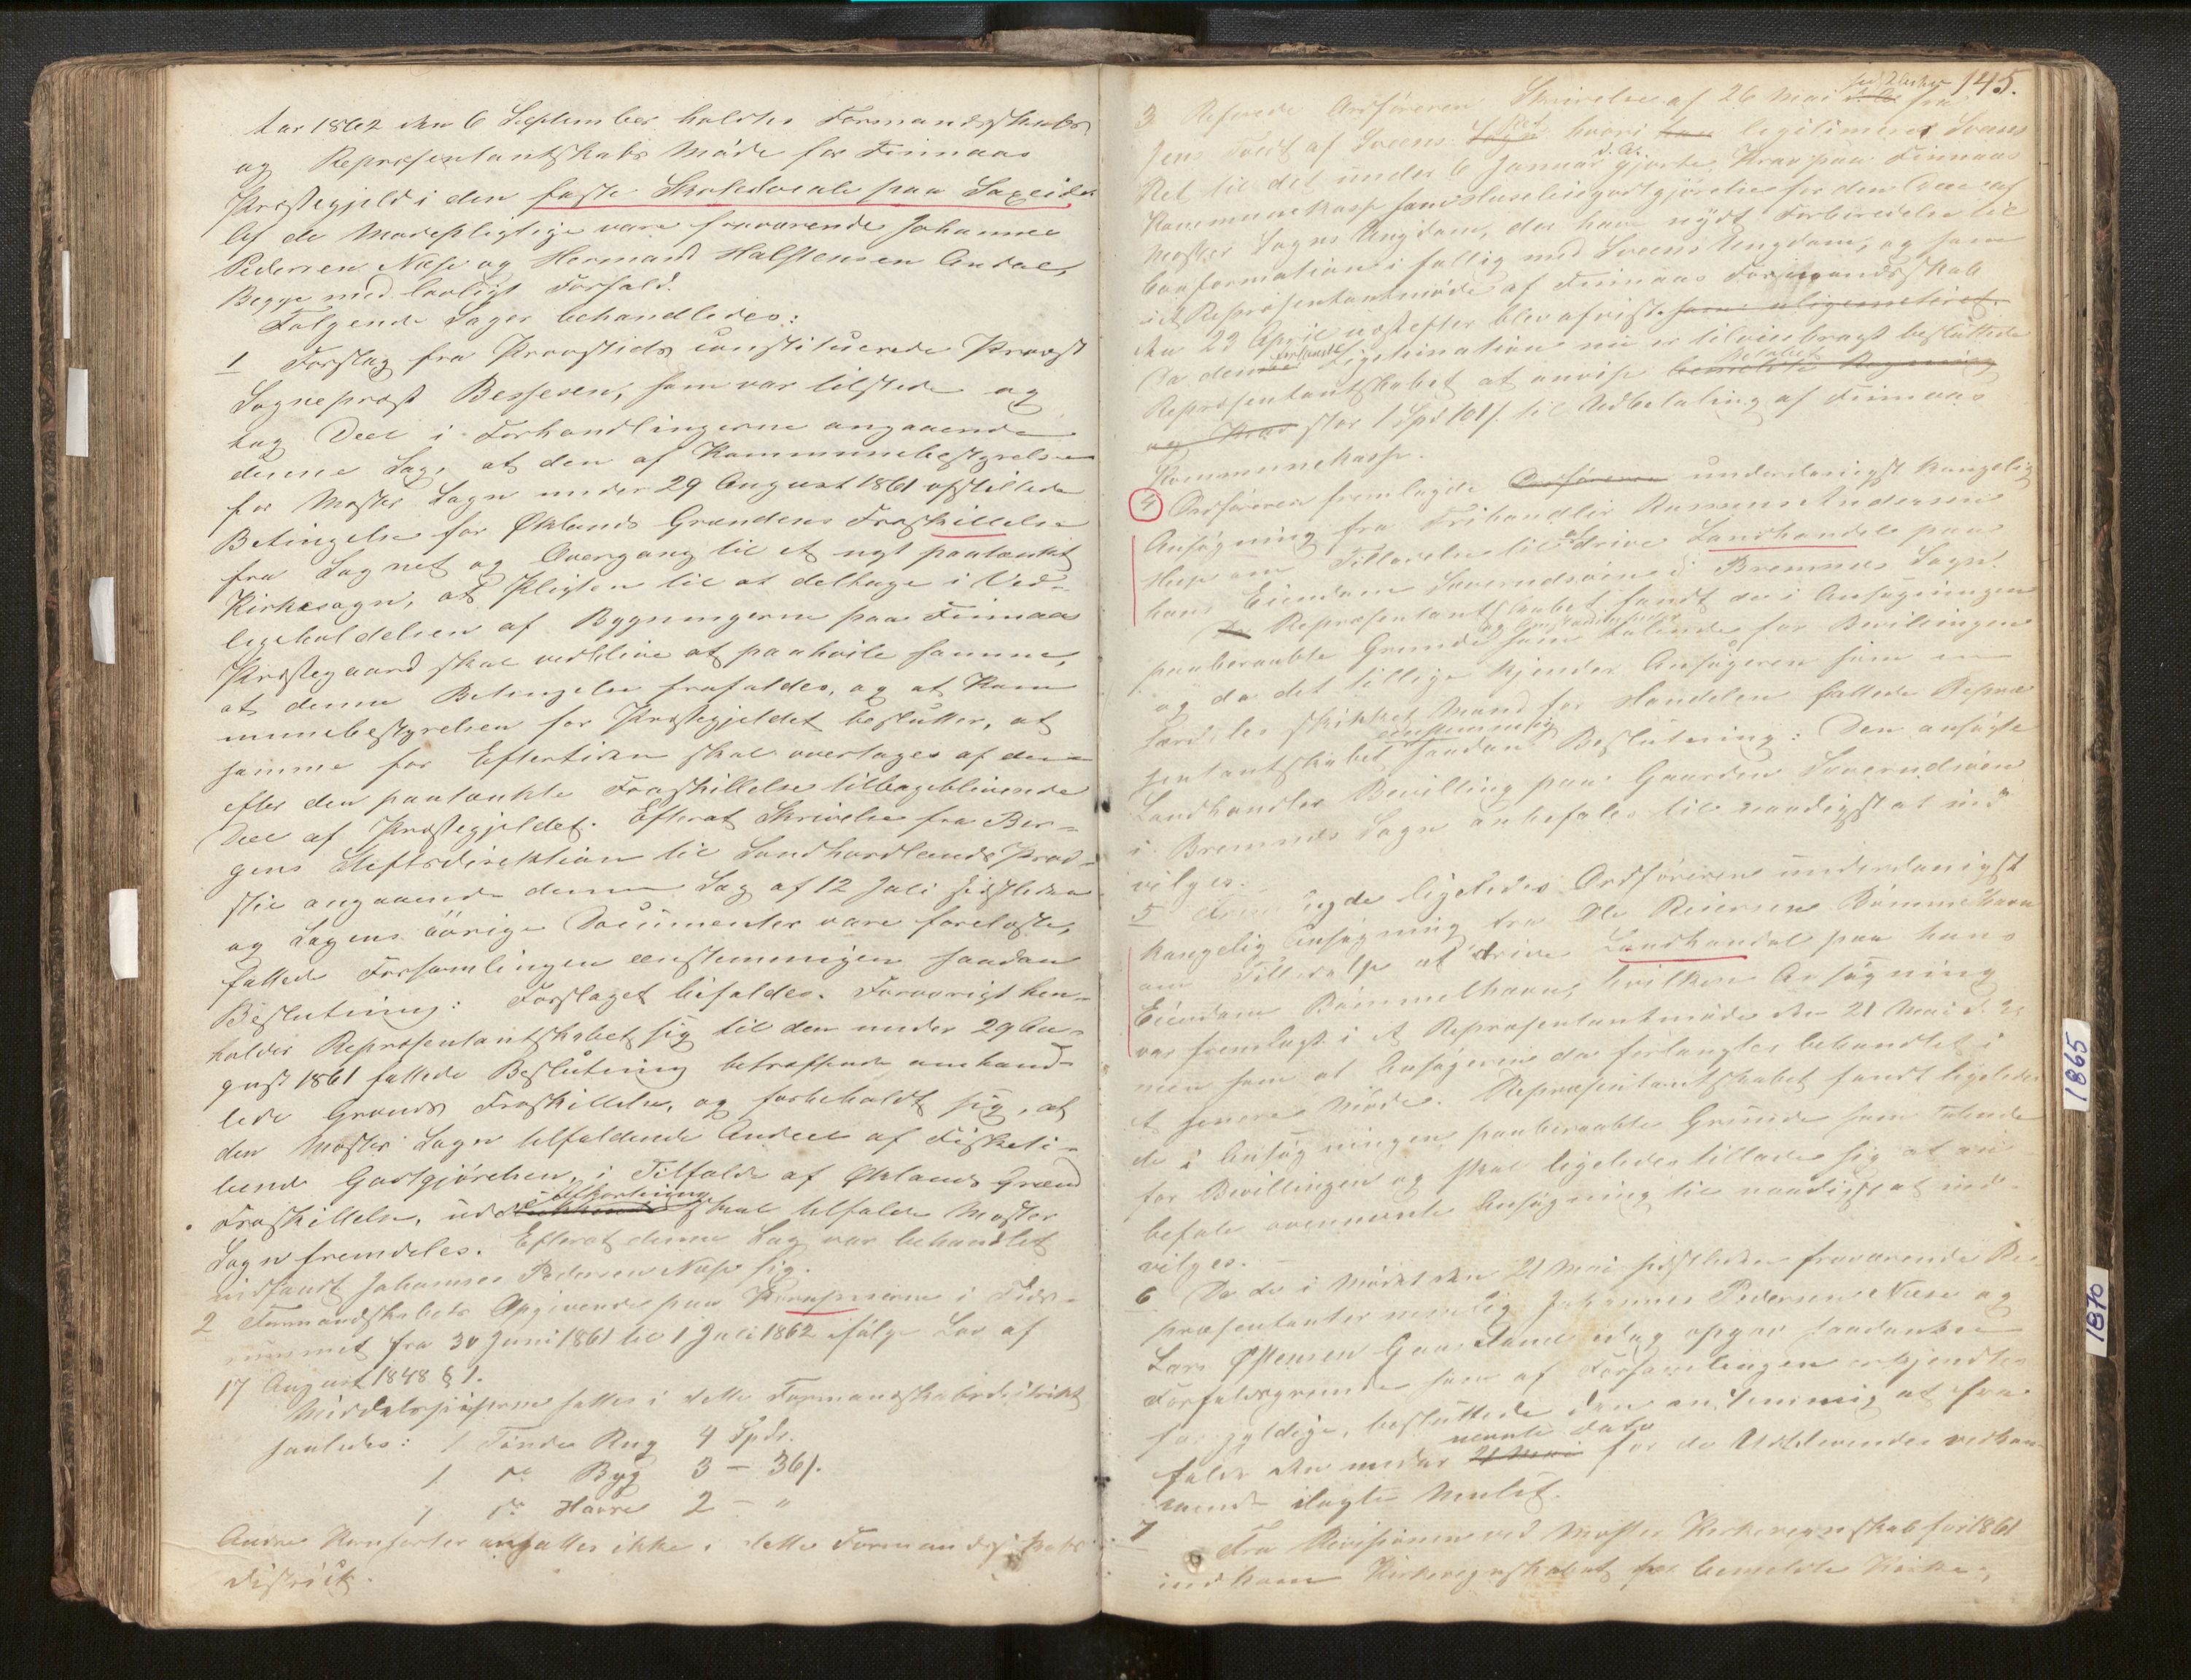 Aar 1862 den 6 September holdtes Formandsskabs
og Repræsentantskabs Møde for Finnaas
Præstegjeld i den faste Skolelocale paa Saxeide
Af de Mødepligtige vare fraværende Johannes
Pedersen Næse og Hermand Halstensen Andal,
Begge med lovligt Forfald.
Følgende Sager behandledes:
1 Forslag fra Provstiets constituerede Provst
Sogneprest Bessesen, som var tilstede og
tog Deel i Forhandlingerne angaaende
denne Sag, at den af Kommunebestyrelsen
for Moster Sogn under 29 August 1861 opstillede
Betingelse for Øklands Grændens Fraskillelse
fra Sognet og Overgang til et nyt paatænkt
Kirkesogn, at Pligten til at deltage i Ved-
ligeholdelsen af Bygningerne paa Finnaas
Præstegaard skal vedblive at paahvile samme,
at denne Betingelse frafaldes, og at Kom
munebestyrelsen for Præstegjeldet beslutter, at
samme for Eftertiden skal overtages af den
efter den paatænkte Fraskillelse tilbageblivende
Deel af Præstegjeldet. Efterat Skrivelse fra Ber-
gens Stiftsdirektion til Søndhordlands Prov-
stie angaaende denne Sag af 12 Juli sidstleden
og Sagens øvrige Documenter vare foreløste,
fattede Forsamlingen eenstemmigen saadan
Beslutning: Forslaget bifaldes. Forøvrigt hen-
holder Repræsentantskabet sig til den under 29 Au-
gust 1861 fattede Beslutning betræffende omhand-
lede Grænds Fraskillelse, og forbeholdt sig, at
den Moster Sogn tilfaldende Andeel af Fisketi-
ende Godtgjørelsen, i Tilfælde af Øklands Grænd
Fraskillelse, uden Afkortning skal tilfalde Moster
Sogn fremdeles. Efterat denne Sag var behandlet
indfandt Johannes Pedersen Næse sig.
2 Formandskabets Opgivende paa Kornpriserne i Tids-
rummet fra 30 Juni 1861 til 1 Juli 1862 ifølge Lov af
17 August 1848 § 1.
Middelspriserne sættes i dette Formandskabsdistrikt
saaledes: 1 Tønde Rug 4 Spdr.
1 do Byg 3 — 36 s.
1 do Havre 2 — "
Andre Kornsorter ansættes ikke i dette Formandsskabs
District.
145.
3 Referede Ordføreren Skrivelse af 26 Mai sidstleden fra
Jens Tvedt af Sveens hvori legitimeres Sveens
Ret til det under 6 Januar d. A. gjorte Krav paa Finnaas
Kommunekasse som Huusleiegodtgjørelse for den Deel af
Moster Sogns Ungdom, der have nydt Forberedelse til
Confirmation i fællig med Sveens Ungdom, og som
i et Repræsentantmøde af Finnaas Formandsskab
den 22 April næstefter blev afvist
Da denne forlangte Ligitimation nu er tilveiebragt besluttede
Repræsentantskabet at anvise Beløbet
stor 1 Spd 101 s. til Udbetaling af Finnaas
Kommunekasse.
4 Ordføreren fremlagde underdanigst kongelig
Ansøgning fra Frihandler Rasmus Andersen
om Tilladelse til at drive Landhandel paa
hans Eiendom Sværndsøen i Bremnes Sogn.
Repræsentantskabet fandt de i Ansøgningen
paaberaabte Grunde og Omstændigheder som talende for Bevillingen
og da det tillige kjender Ansøgeren som en
særdeles skikket Mand for Handelen fattede Repræ
sentantskabet eenstemmig saadan Beslutning: Den ansøgte
Landhandler Bevilling paa Gaarden Sværndsøen
i Bremnes Sogn anbefales til naadigst at ind-
vilges.
5 Fremlagde ligeledes Ordføreren underdanigst
kongelig Ansøgning fra Ole Reiersen Bømmelhavn
om Tilladelse at drive Landhandel paa hans
Eiendom Bømmelhavn, hvilken Ansøgning
var fremlagt i et Repræsentantmøde den 21 Mai d. A.
men som at Ansøgeren da forlangtes behandlet i
et senere Møde. Repræsentantskabet fandt ligeledes
de i Ansøgningen paaberaabte Grunde som talende
for Bevillingen og skal ligeledes tillade sig at an
befale ovennævnte Ansøgning til naadigst at ind-
vilges. —
6 Da de i Mødet den 21 Mai sidstleden fraværende Re-
præsentanter nemlig Johannes Pedersen Næse og
Lars Østensen Gaasland idag opgav saadanne
Forfaldsgrunde som af Forsamlingen erkjendtes
for gyldige, besluttede den eenstemmig at fra
falde den under nævnte Dato for de Udeblevende vedkom
mende ilagte Mulct.
7 Fra Revisionen ved Moster Kirkeregnskab for 1861
indkom Kirkeregnskabet for bemeldte Kirke,
1865
1870